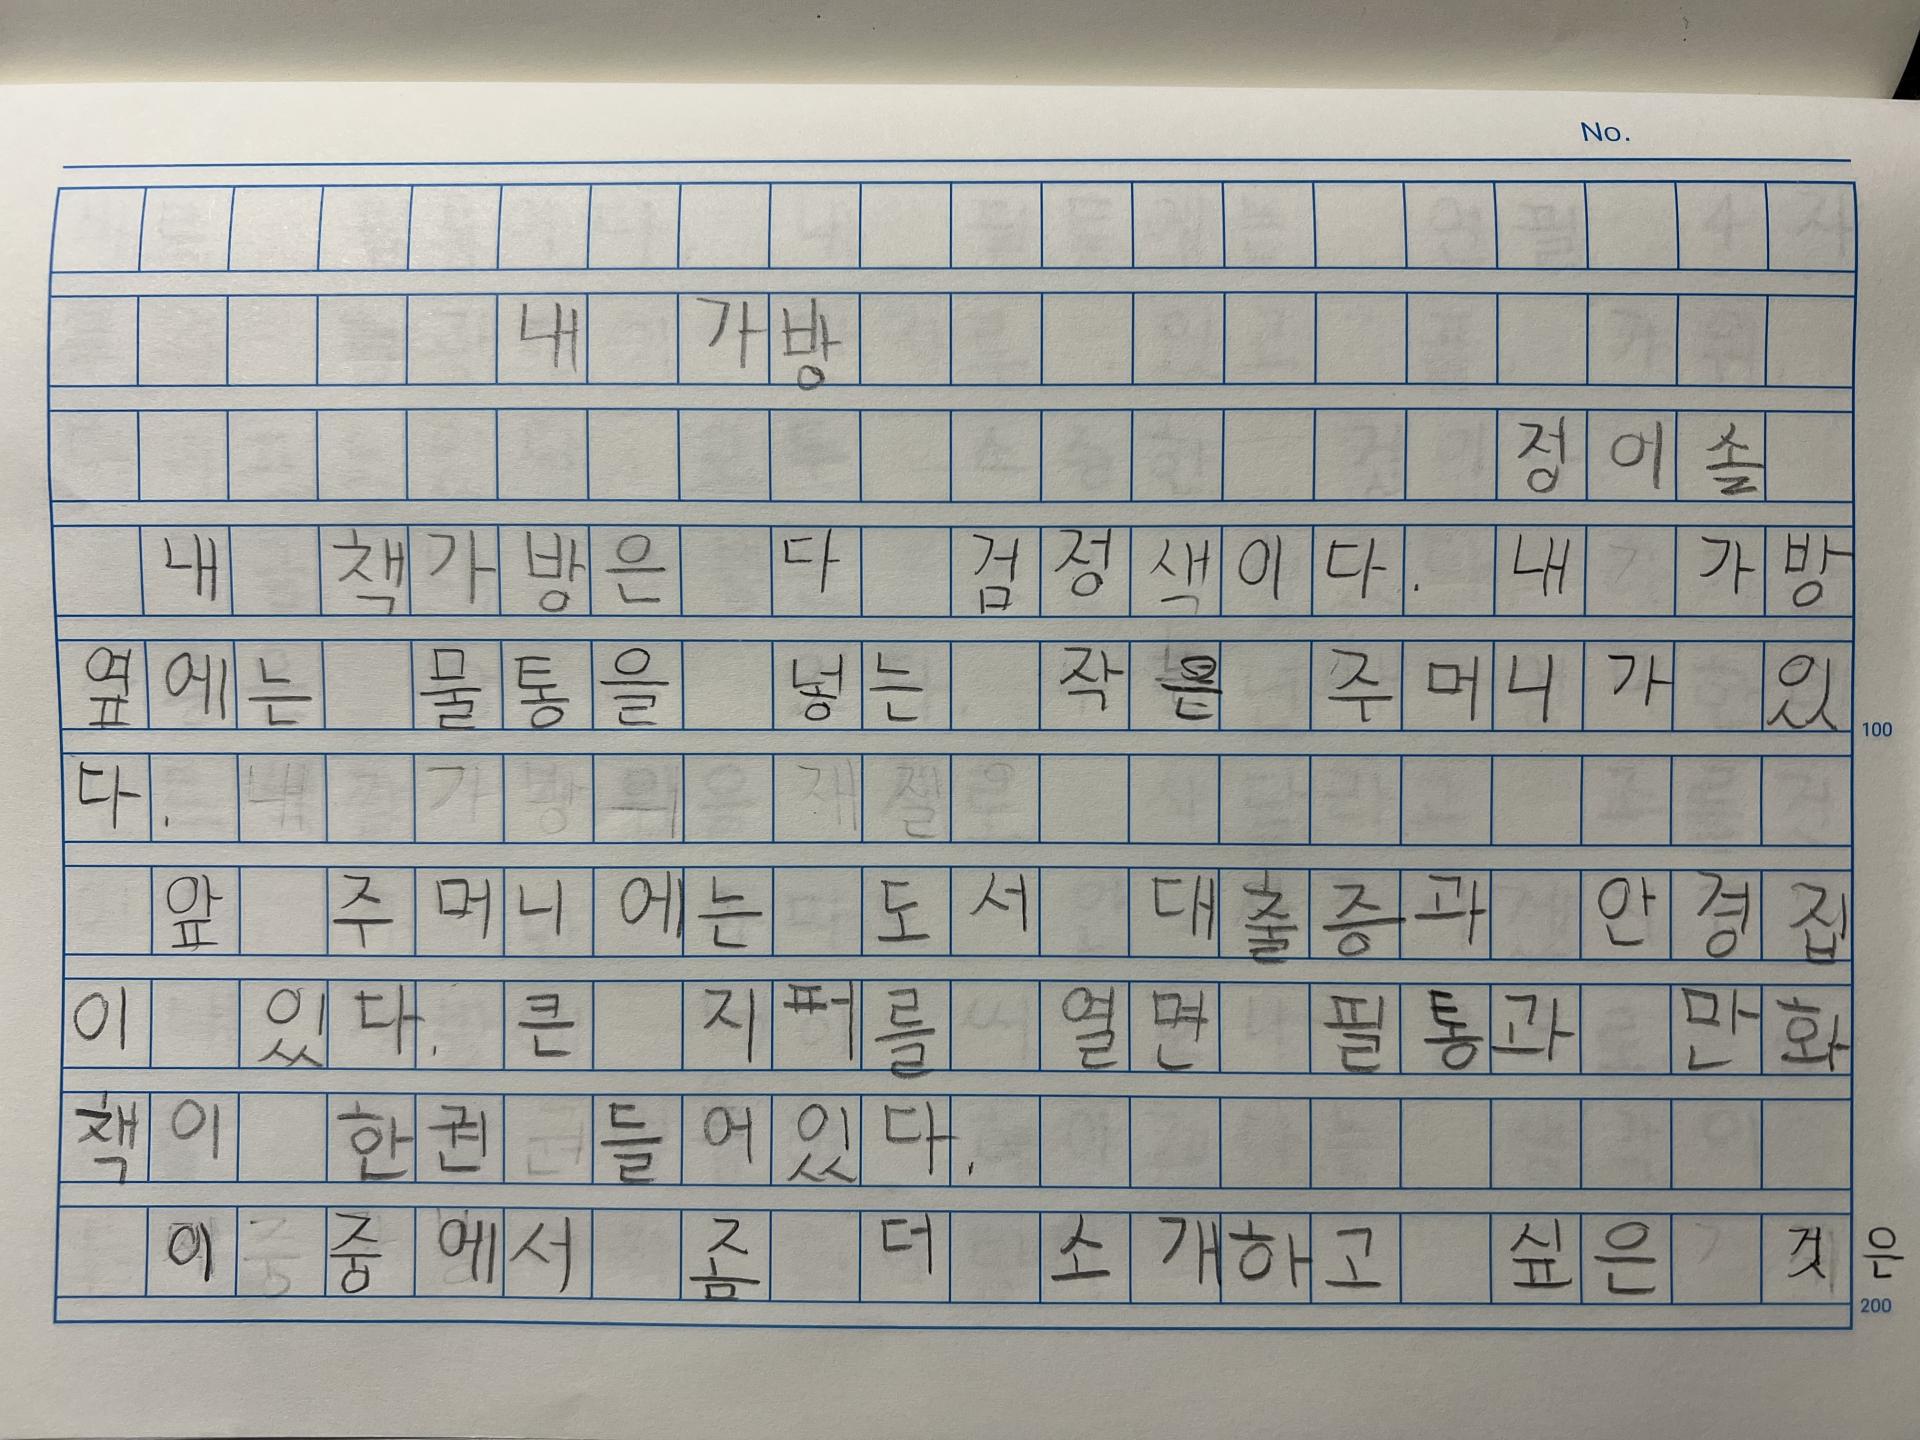 No.
내 가방
정이솔
내 책가방은 다 검정색이다. 내 가방
옆에는 물통을 넣는 작은 주머니가 있
다.
앞 주머니에는 도서 대출증과 안경집
이 있다. 큰 지퍼를 열면 필통과 만화
책이 한권 들어있다.
이 중에서 좀 더 소개하고 싶은 것은
100
200